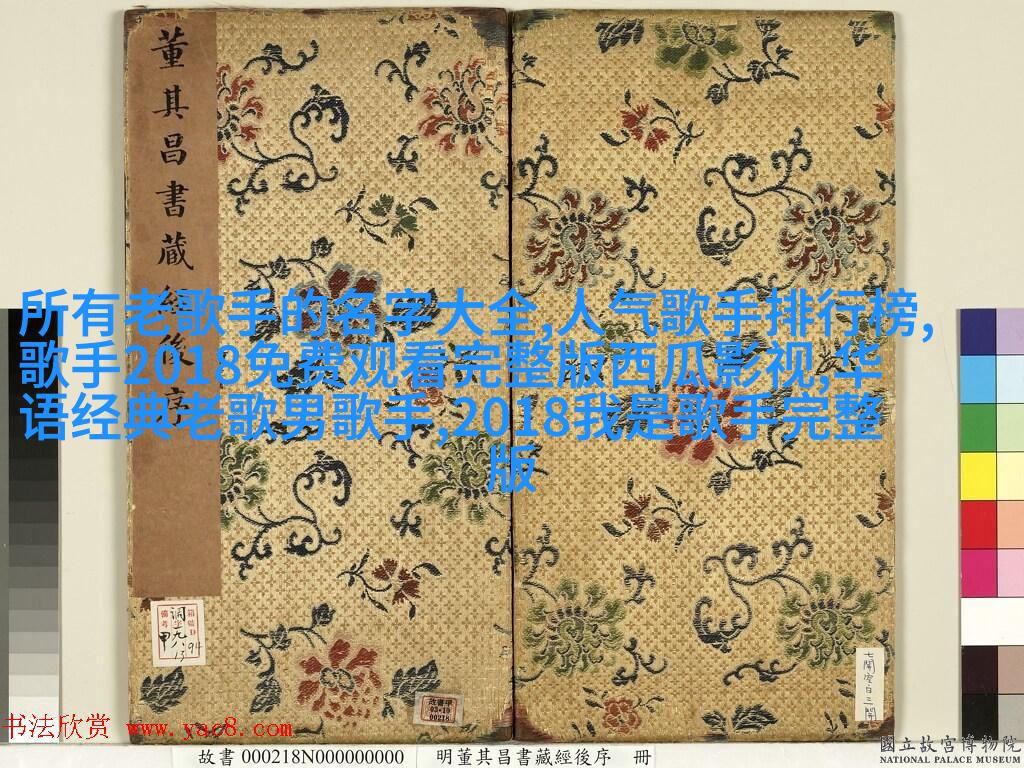 董其昌書藏經後序
所有老歌手的名字大全,人气歌手排行榜,
歌手2018免费观看完整版西瓜影视,华
语经典老歌男歌手,2018我是歌手完整
版
箱號D
備考
94
甲
13
故書甲
03-10
00218
七開空白三開
书法欣赏 www.yac8.com
故書 000218N000000000 明董其昌書藏經後序 冊
國立故宮博物院
NATIONAL PALACE MUSEUM